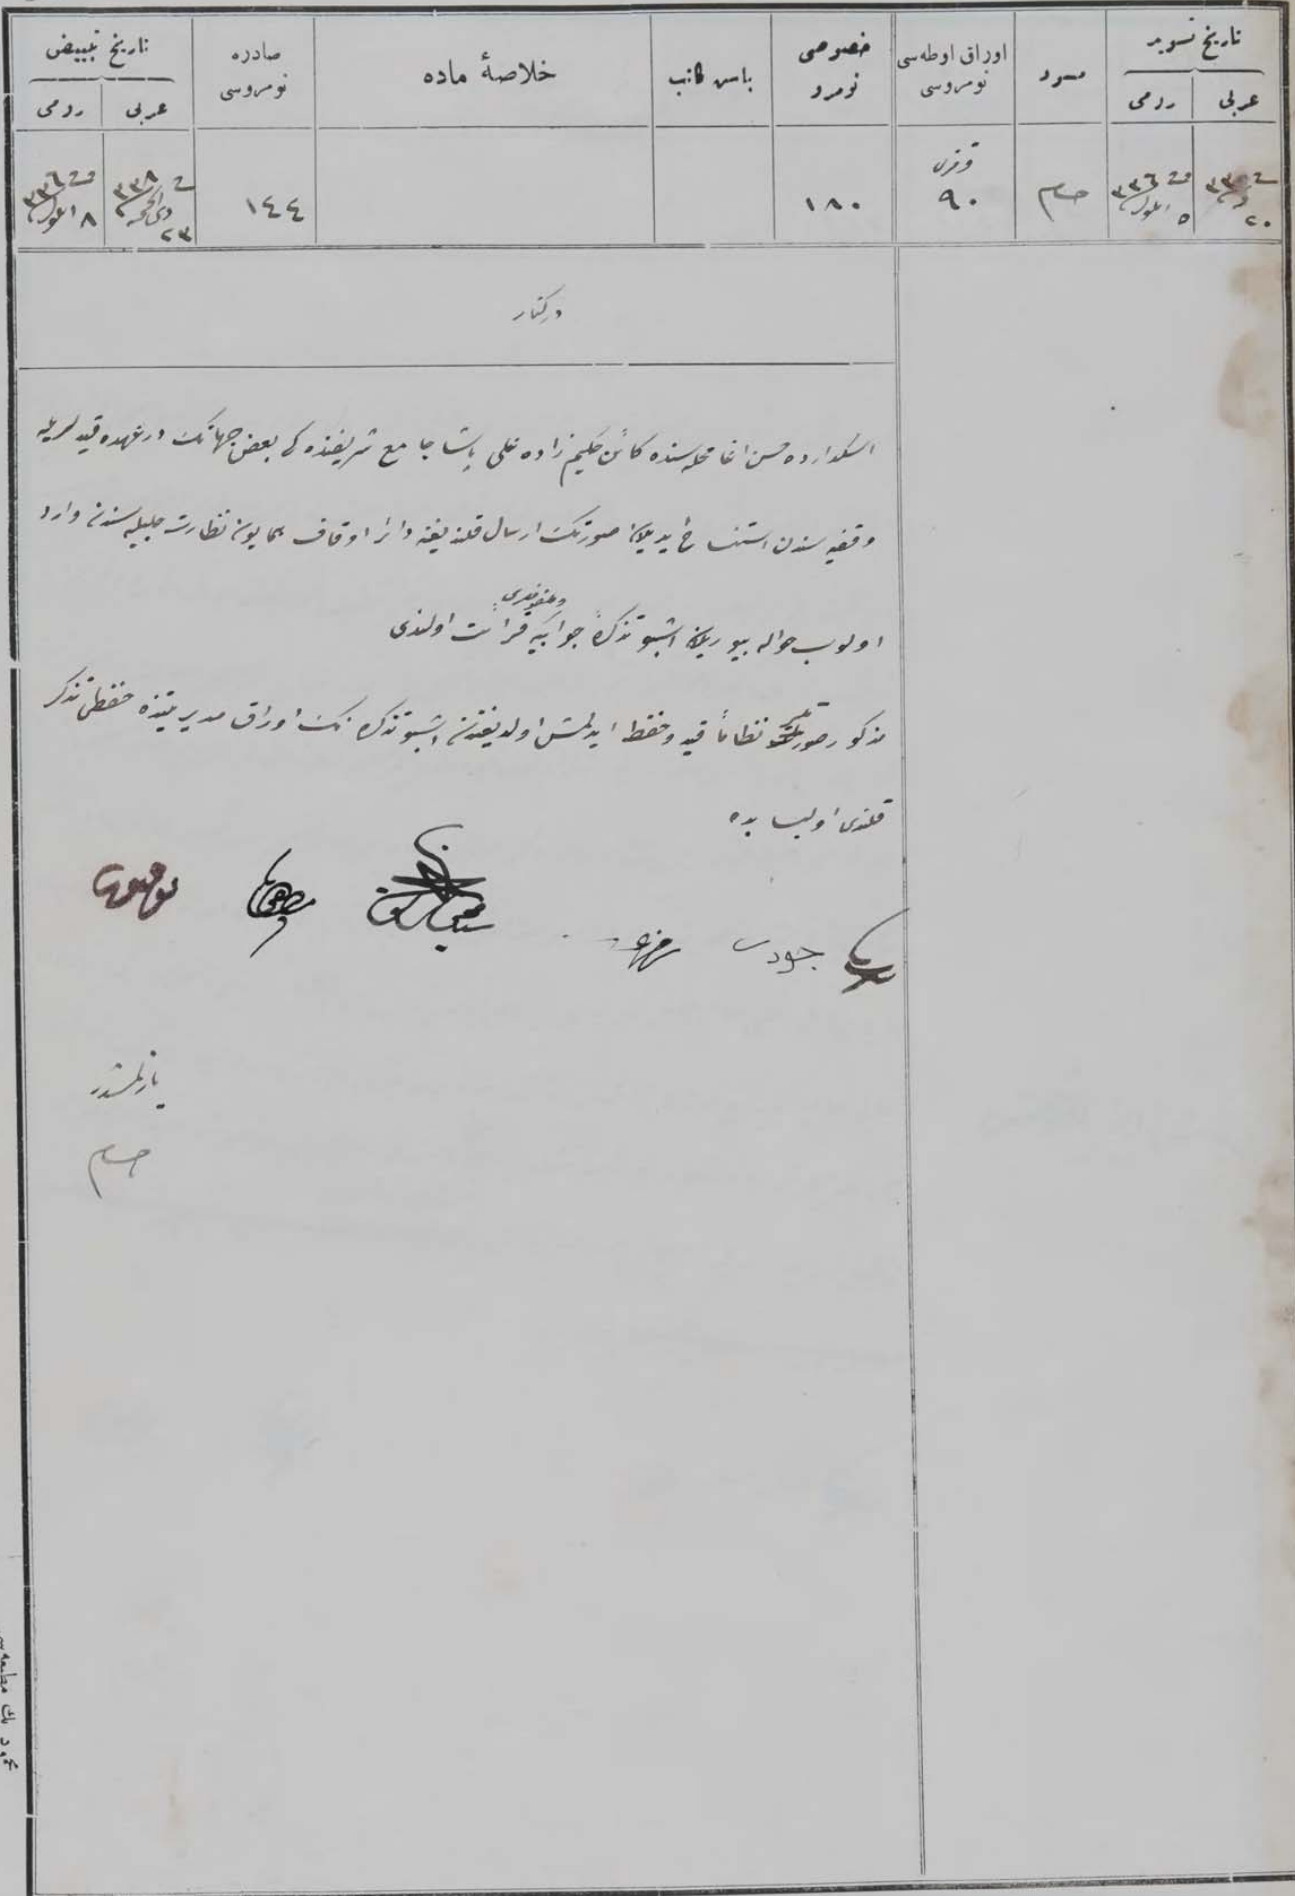 تاریخ تسوید
عربی رومی
مسود
اوراق اوطه‌سی نومروسی
خصوصی نومرو
باش کاتب
خلاصهٔ ماده
صادره نومروسی
تاریخ تبییض
عربی رومی
٢٠
٥ ایلول ٣٣٦
حسام
٩٠
١٨٠
١٤٤
٢٣ ذی الحجه ٣٣٨
٨ ایلول ٣٣٦
درکنار
اسکدارده حسن اغا محله‌سنده کائن حکیم زاده علی پاشا جامع شریفنده کی بعض جهاتک درعهده قیدلریله
وقفیه سندن استنساخ ایدیلان صورتک ارسال قلندیغنه دائر اوقاف همایون نظارت جلیله سندن وارد
اولوب حواله بیوریلان اشبو تذکرهٔ جوابیه قرائت اولندی
مذکور نظاماً قید و حفظ ایدلمش اولدیغندن اشبو تذکره نک اوراق مدیریتنده حفظی تذکر
قلندی اولبابده
جودت
توفیق
یازلمشدر
حسام
محمود بك مطبعه‌سی